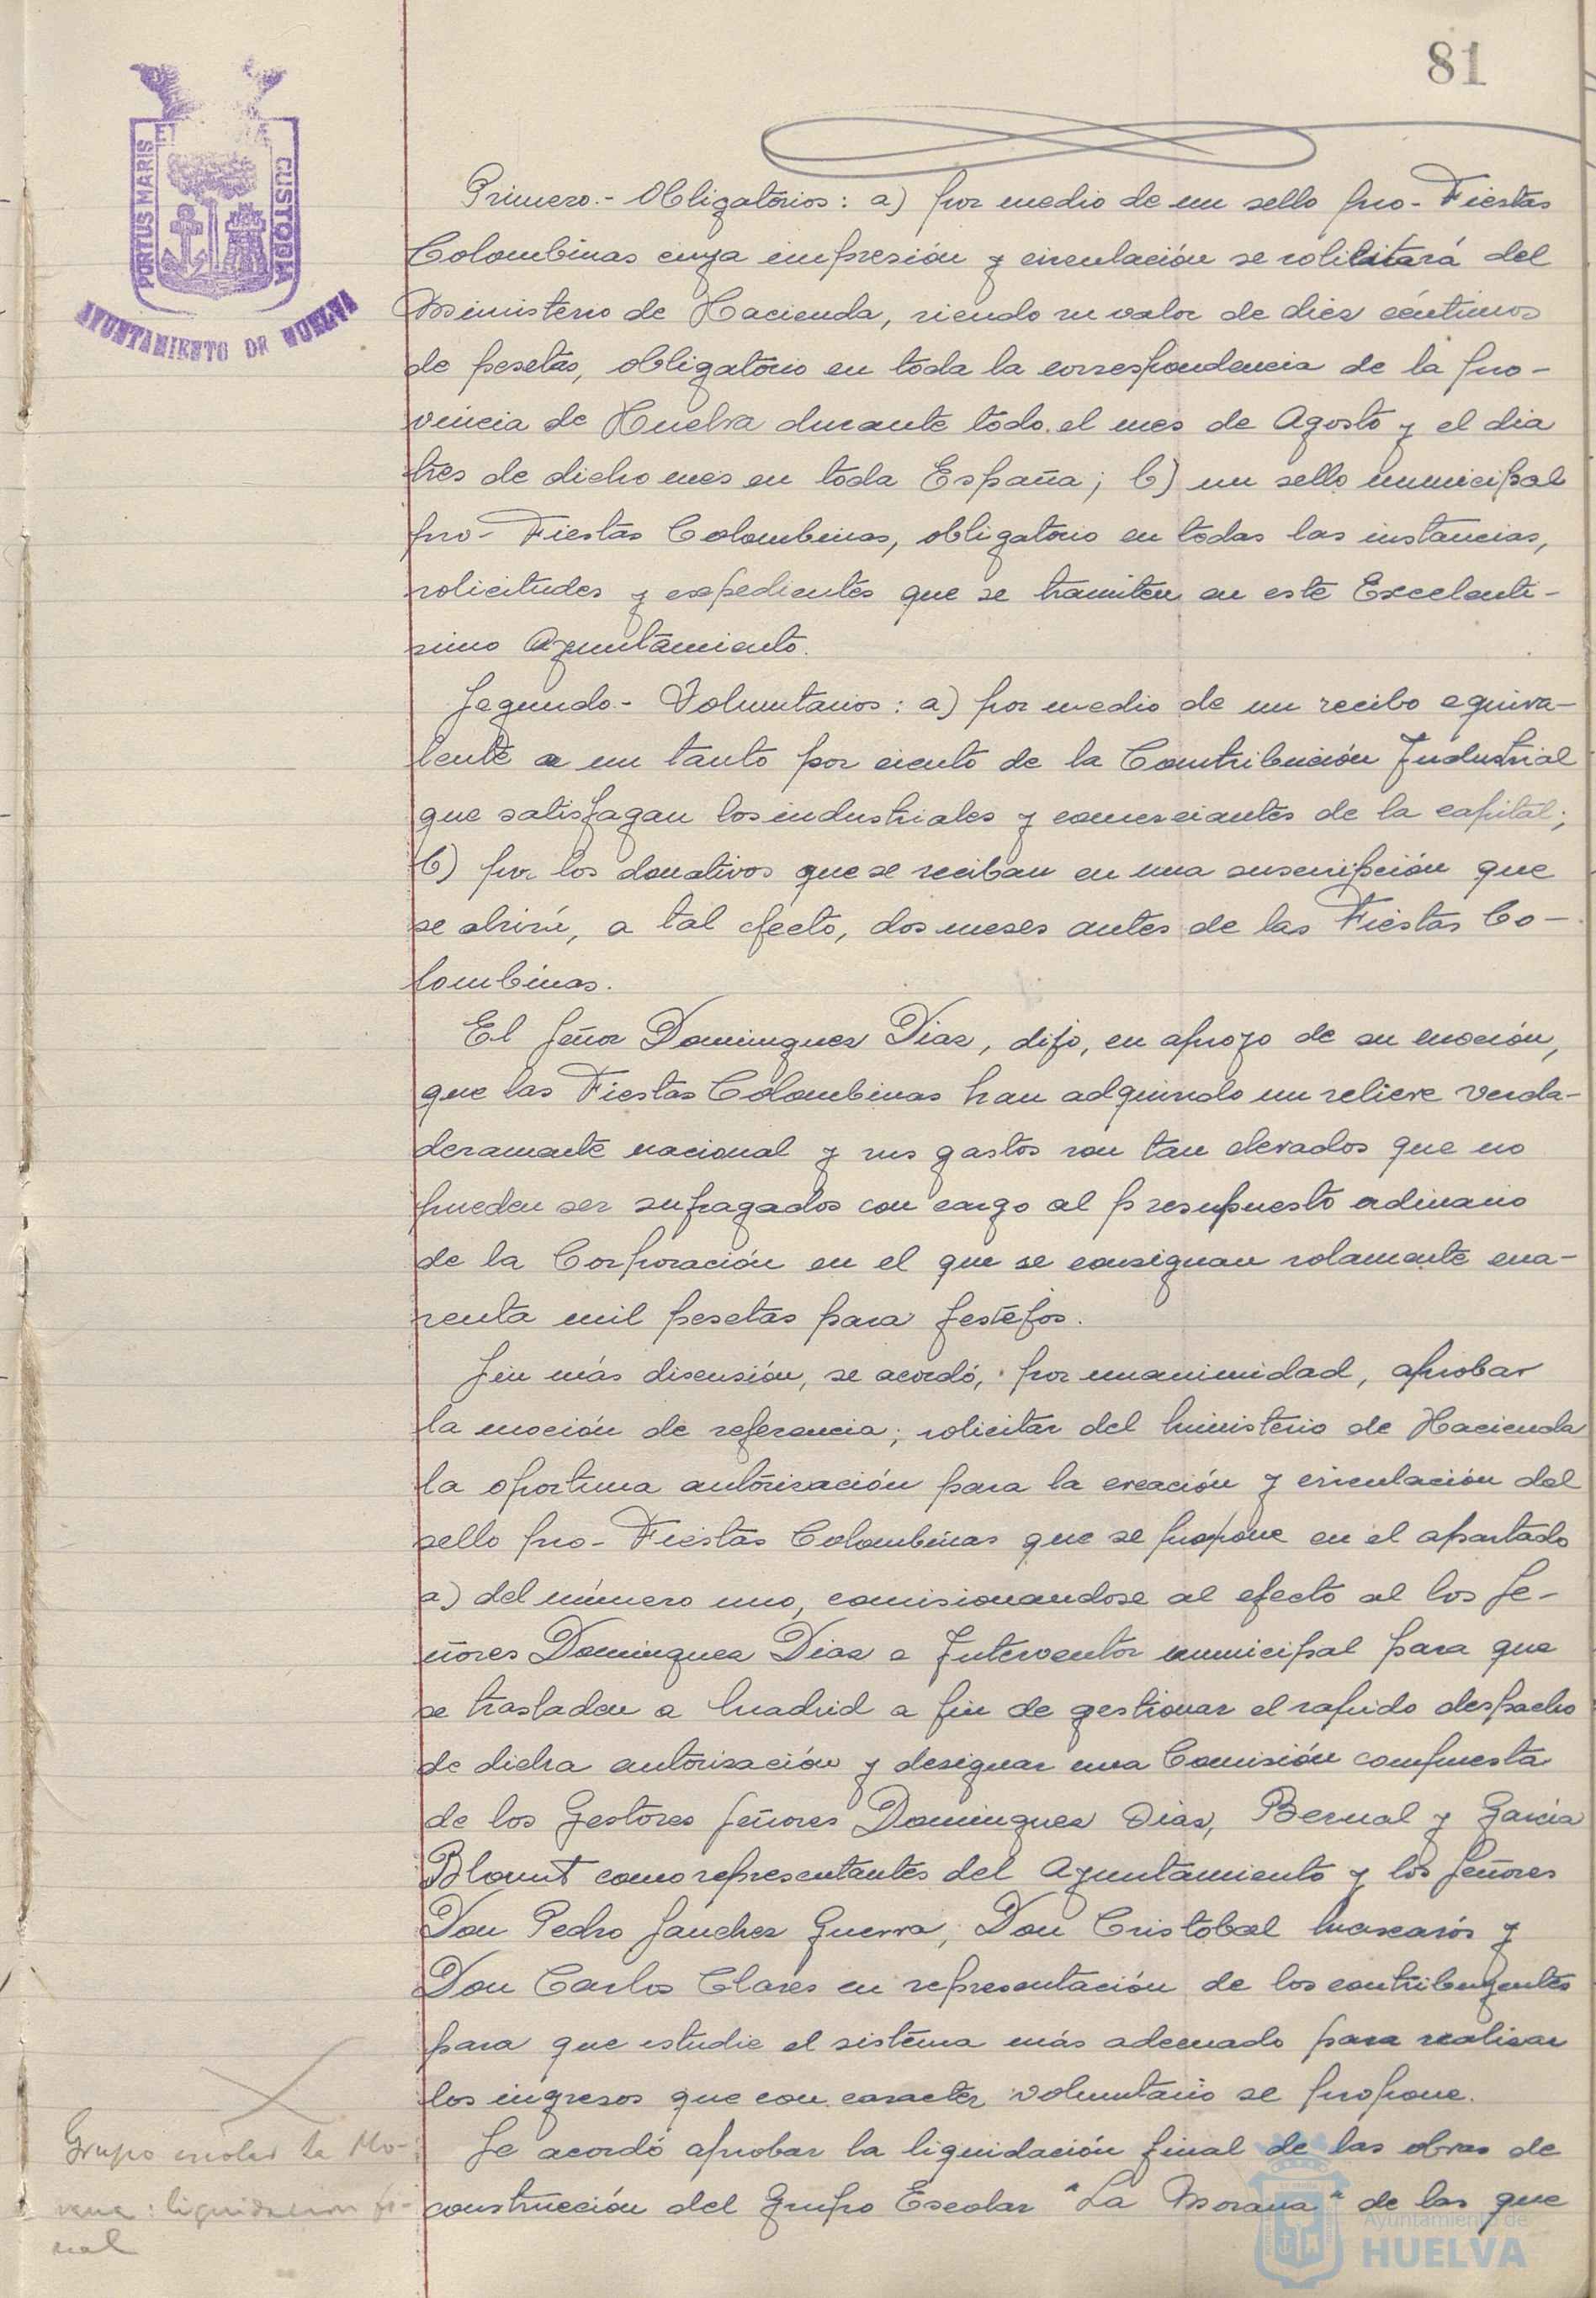 81
PORTUS MARIS ET TERRAE CUSTODIA
AYUNTAMIENTO DE HUELVA
Primero.- Obligatorios: a) por medio de un sello pro-Fiestas
Colombinas cuya impresión y circulación se solicitará del
Ministerio de Hacienda, siendo su valor de diez céntimos
de pesetas, obligatorio en toda la correspondencia de la pro-
vincia de Huelva durante todo el mes de Agosto y el dia
tres de dicho mes en toda España; b) un sello municipal
pro-Fiestas Colombinas, obligatorio en todas las instancias,
solicitudes y expedientes que se tramiten en este Excelentí-
simo Ayuntamiento.
Segundo.- Voluntarios: a) por medio de un recibo equiva-
lente a un tanto por ciento de la Contribución Industrial
que satisfagan los industriales y comerciantes de la capital;
b) por los donativos que se reciban en una suscripción que
se abrirá, a tal efecto, dos meses antes de las Fiestas Co-
lombinas.
El Señor Dominguez Diaz, dijo, en apoyo de su moción,
que las Fiestas Colombinas han adquirido un relieve verda-
deramente nacional y sus gastos son tan elevados que no
pueden ser sufragados con cargo al presupuesto ordinario
de la Corporación en el que se consignan solamente cua-
renta mil pesetas para festejos.
Sin más discusión, se acordó, por unanimidad, aprobar
la moción de referencia; solicitar del Ministerio de Hacienda
la oportuna autorización para la creación y circulación del
sello pro-Fiestas Colombinas que se propone en el apartado
a) del número uno, comisionandose al efecto al los Se-
ñores Dominguez Diaz e Interventor municipal para que
se trasladen a Madrid a fin de gestionar el rapido despacho
de dicha autorización y designar una Comisión compuesta
de los Gestores Señores Dominguez Diaz, Bernal y García
Blount como representantes del Ayuntamiento y los Señores
Don Pedro Sánchez Guerra, Don Cristobal Mascarós y
Don Carlos Clares en representación de los contribuyentes
para que estudie el sistema más adecuado para realizar
los ingresos que con caracter voluntario se propone.
Se acordó aprobar la liquidación final de las obras de
construcción del Grupo Escolar "La Morana" de las que
Grupo escolar la Mo-
rana: liquidacion fi-
nal
Ayuntamiento de
HUELVA